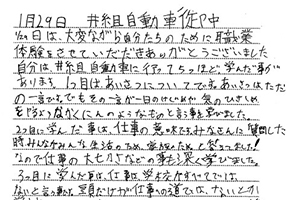 1月29日 井組自動車御中
1/29日は、大変ながら自分たちのために職業
体験をさせていただきありがとうございました
自分は、井組自動車に行って5つほど学んだ事が
あります 1つ目は、あいさつについてです。あいさつはただ
の一言です。でもその一言が一日のけじめや気のひきしめ
をするようなかくにんのようなものと言う事を学びました。
2つ目に学んだ事は、仕事の意味です。みなさんに質問した
時みんなが みんな 生活のため、家族がためと言っていました!
なので仕事の大せつさなどの事も深く学びました。
3つ目に学んだ事は、仕事は、学力だけでは
ないと言う事です。頭だけが仕事への道では、ないとか